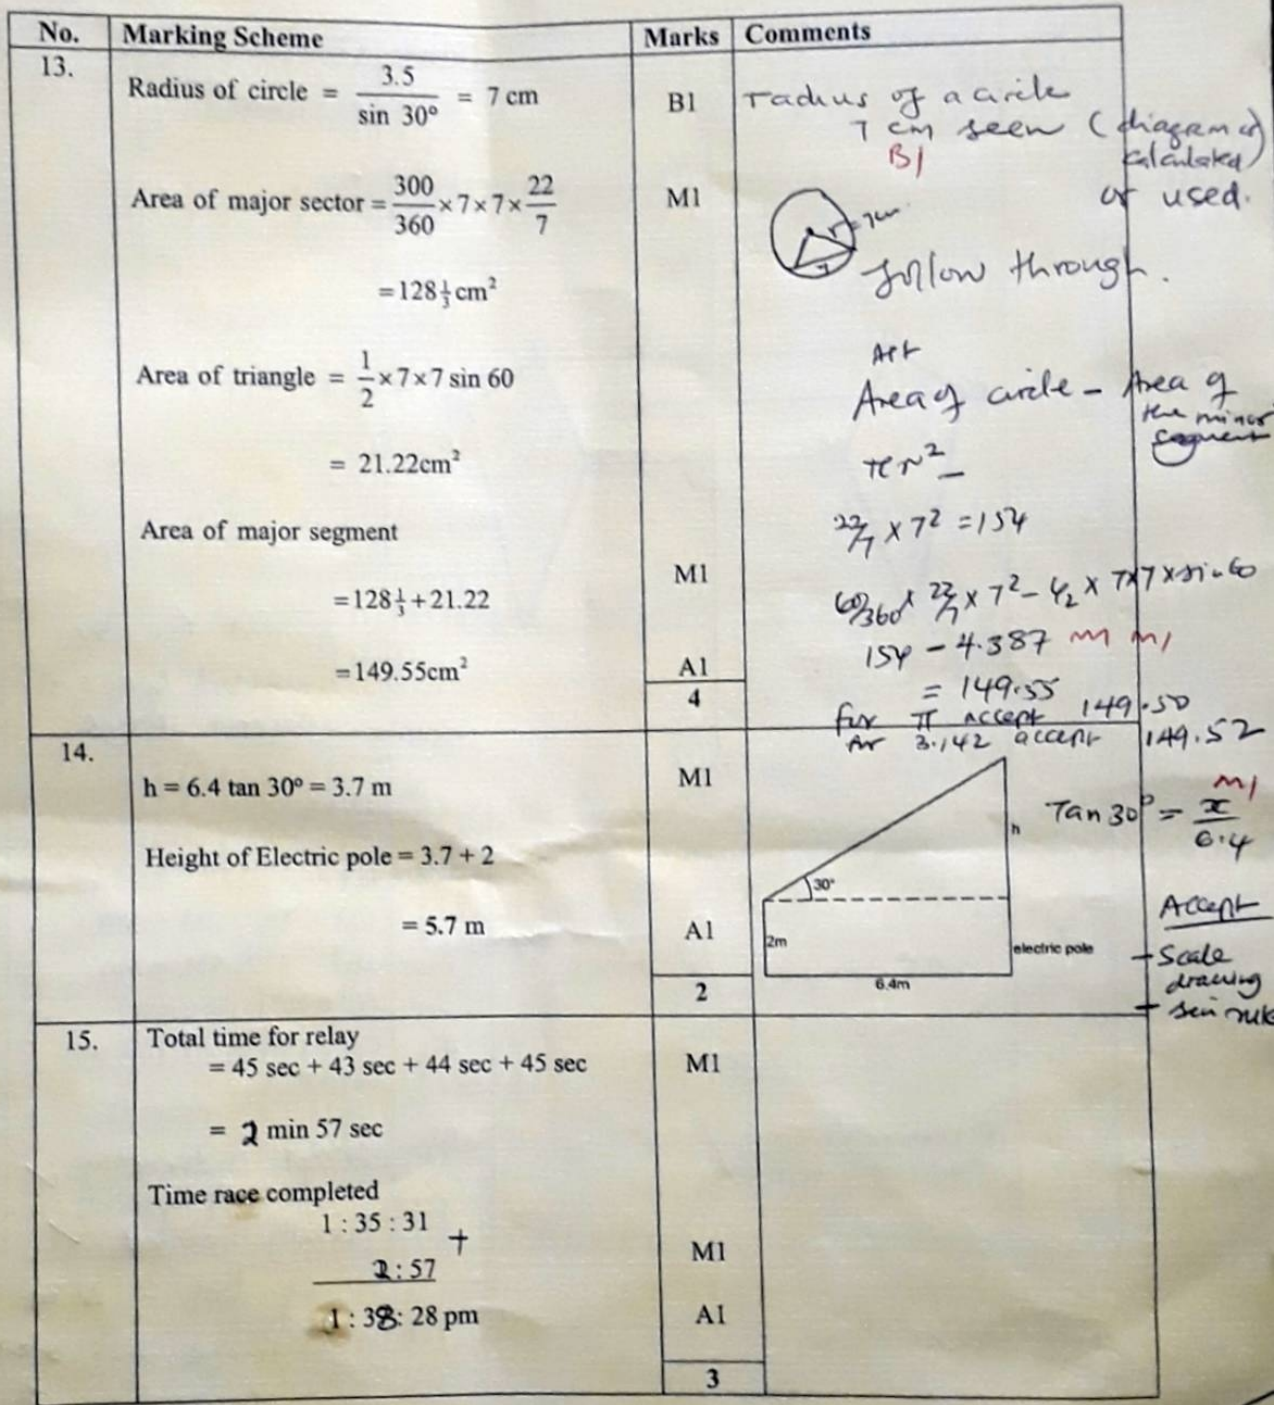 No. Marking Scheme Marks Comments
13.
Radius of circle = 3.5 / sin 30° = 7 cm B1
radius of a circle
7 cm seen (diagram or
calculated)
B1
or used.
Area of major sector = 300/360 × 7 × 7 × 22/7 M1
r=7cm
7
follow through.
= 128 1/3 cm²
Area of triangle = 1/2 × 7 × 7 sin 60
= 21.22cm²
Area of circle – Area of
the minor
segment
πr² –
22/7 × 7² = 154
Area of major segment
M1
= 128 1/3 + 21.22
60/360 × 22/7 × 7² – 1/2 × 7×7×sin 60
154 – 4.387 M1 M1
= 149.55cm² A1
= 149.55
4
for π accept 149.50
for 3.142 accept 149.52
14.
h = 6.4 tan 30° = 3.7 m M1
Height of Electric pole = 3.7 + 2
= 5.7 m A1
2
h
30°
2m
electric pole
6.4m
M1
Tan 30° = x / 6.4
Accept
– Scale
drawing
– sin rule
15.
Total time for relay
= 45 sec + 43 sec + 44 sec + 45 sec M1
= 2 min 57 sec
Time race completed
1 : 35 : 31
+
2 : 57 M1
1 : 38 : 28 pm A1
3